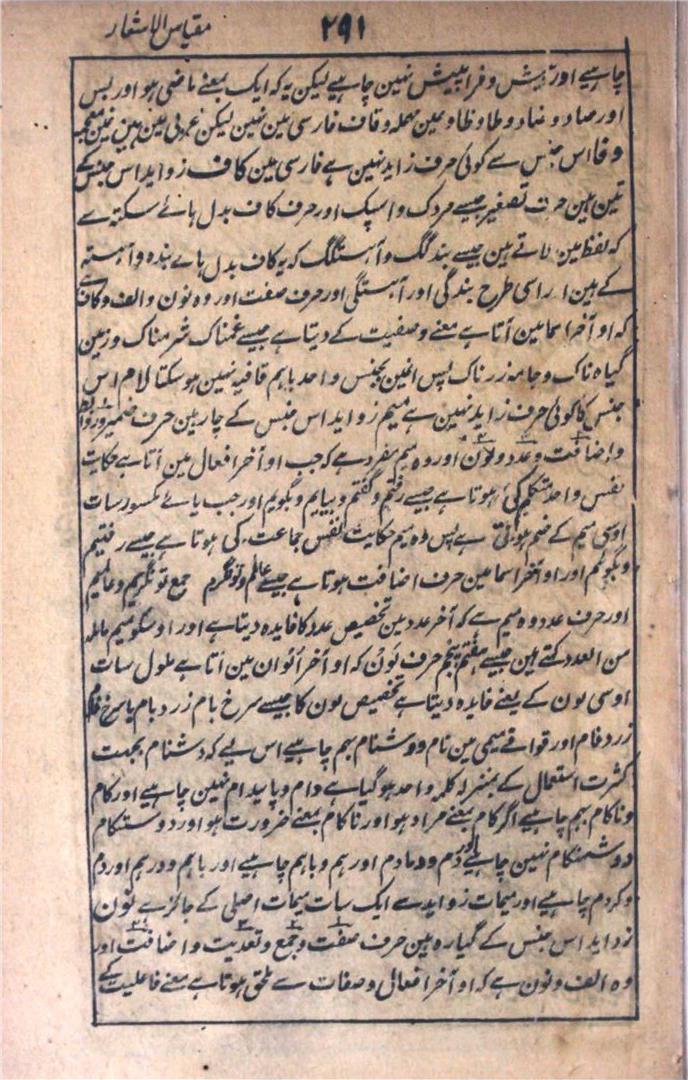 ۲۹۱
مقیاس الاشعار
چاہیے اور بیش و فرا بیش نہین چاہیے لیکن یہ کہ ایک بمعنے ماضی ہو اور بس
اور صاد و ضاد و طا و ظا و عین مہملہ و قاف فارسی مین نہین لیکن عربی مین ہین غین معجمہ
و فا اس جنس سے کوئی حرف زاید نہین ہے فارسی مین کاف زواید اس جنس کے
تین ہین حرف تصغیر جیسے مردک و اسپک اور حرف کاف بدل ہائے سکتہ سے
کہ لفظ مین لاتے ہین جیسے بندگک و آہستگک کہ یہ کاف بدل ہاے بندہ و آہستہ
کے ہین اور اسی طرح بندگی اور آہستگی اور حرف صفت اور وہ نون و الف و کاف ہے
کہ اواخر اسما مین آتا ہے معنے وصفیت کے دیتا ہے جیسے غمناک شرمناک و زمین
گیاہ ناک و جامہ زرناک پس انمین بجنس واحد باہم قافیہ نہین ہو سکتا لام اس
جنس کا کوئی حرف زاید نہین ہے میم زواید اس جنس کے چار ہین حرف ضمیر و رابط
و اضافت و عدد و لون اور وہ میم مفرد ہے کہ جب اواخر افعال مین آتا ہے حکایت
نفس واحد متکلم کی ہوتا ہے جیسے رفتم و گفتم و بیایم و بگویم اور جب یائے مکسور سات
اوسی میم کے ضم ہوتی ہے پس وہ میم حکایت نفس جماعت کی ہوتا ہے جیسے رفتیم
و بگوئیم اور اواخر اسما مین حرف اضافت ہوتا ہے جیسے عالم و توانگرم جمع توانگریم و عالمیم
اور حرف عدد وہ میم ہے کہ آخر عدد مین تخصیص عدد کا فایدہ دیتا ہے اور اوسکو میم عاملہ
من العدد کہتے ہین جیسے ہفتم پنجم حرف لون کہ اواخر الوان مین آتا ہے ملول سات
اوسی لون کے یعنے فایدہ دیتا ہے تخصیص لون کا جیسے سرخ بام زرد بام یا سرخ فام
زرد فام اور قوافے میمی مین نام و دشنام بہم چاہیے اس لیے کہ دشنام بجہت
کثرت استعمال کے بمنزلہ کلمہ واحد ہو گیا ہے دام و پایدام نہین چاہیے اور کام
و ناکام بہم چاہیے اگر کام بمعنے مراد ہو اور ناکام بمعنے ضرورت ہو اور دوستکام
دشمنکام نہین چاہیے اور دم و دمادم اور ہم و باہم چاہیے اور باہم و درہم اور دم
و کردم چاہیے اور میمات زواید سے ایک سات میمات اصلی کے جائز ہے نون
زواید اس جنس کے گیارہ ہین حرف صفت و جمع و تعدیت و اضافت اور
وہ الف و نون ہے کہ اواخر افعال و صفات سے ملحق ہوتا ہے معنے فاعلیت کے